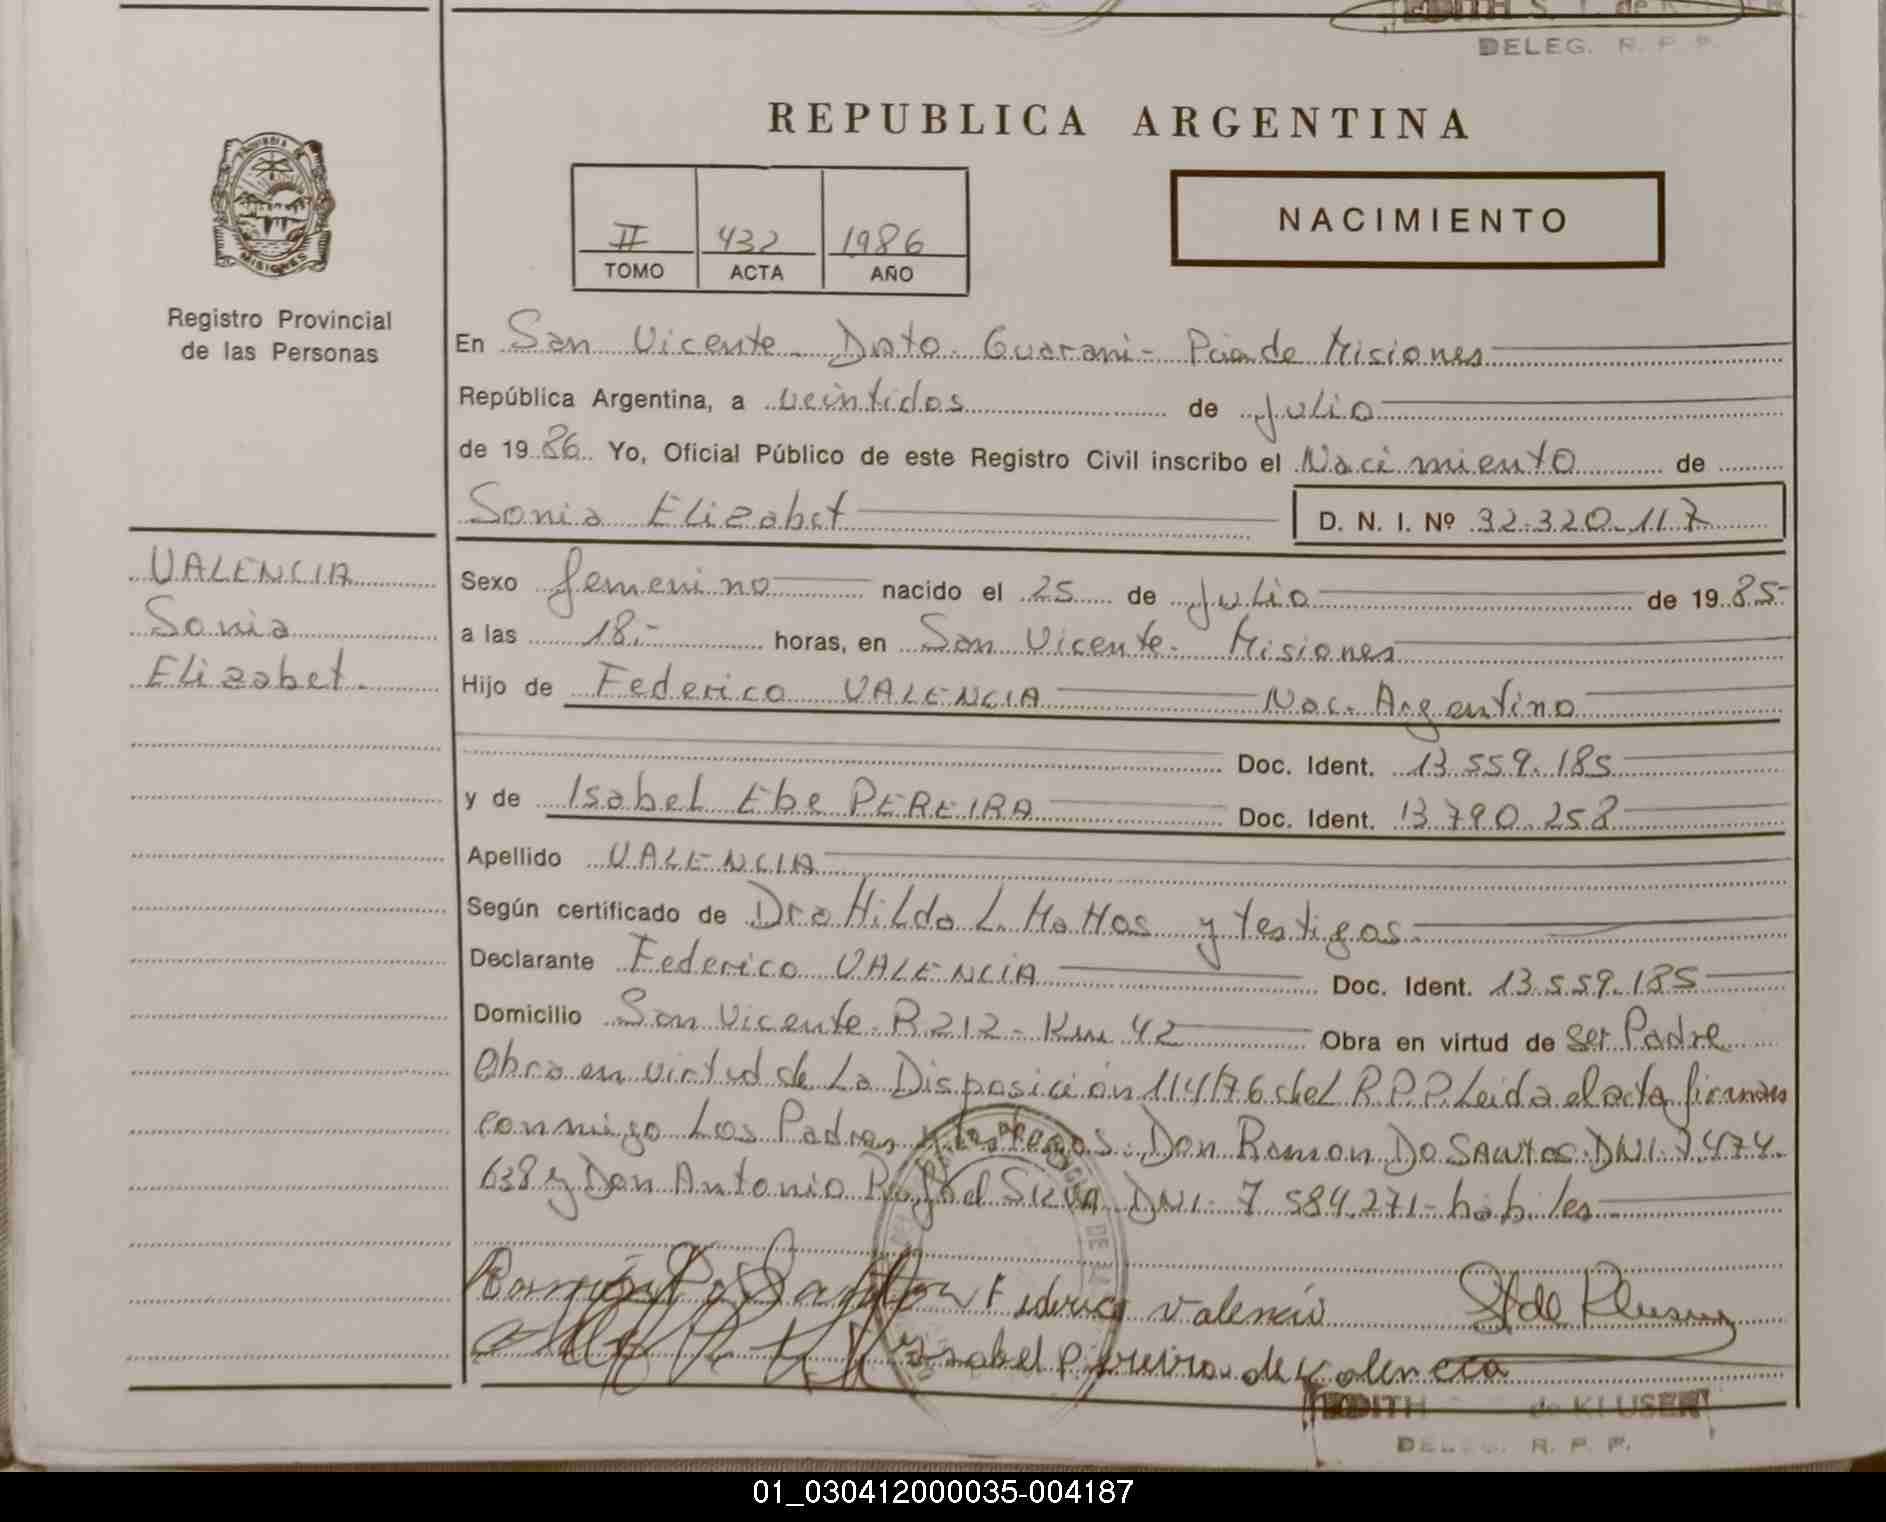 DELEG. R. P. P.
REPUBLICA ARGENTINA
PROVINCIA DE
MISIONES
Registro Provincial
de las Personas
II 432 1986
TOMO ACTA AÑO
NACIMIENTO
En San Vicente Dpto. Guarani - Pcia de Misiones
República Argentina, a veintidos de Julio
de 1986 Yo, Oficial Público de este Registro Civil inscribo el Nacimiento de
Sonia Elizabet D. N. I. Nº 32.320.117
VALENCIA
Sonia
Elizabet.
Sexo femenino nacido el 25 de Julio de 1985-
a las 18.- horas, en San Vicente. Misiones
Hijo de Federico VALENCIA Nac. Argentino
Doc. Ident. 13.559.185
y de Isabel Ebe PEREIRA Doc. Ident. 13.790.258
Apellido VALENCIA
Según certificado de Dra Hilda L. Mattos y testigos
Declarante Federico VALENCIA Doc. Ident. 13.559.185
Domicilio San Vicente R 212 - Km 42 Obra en virtud de ser Padre
Obra en virtud de La Disposición 114/76 del R.P.P. Leida el acta firman
conmigo Los Padres y testigos: Don Ramon Do Santos DNI. 7.474.
638 y Don Antonio Rafael SILVA DNI. 7 584.271- habiles
Ramón Do Santos Federico Valencia St de Kluser
Isabel Pereira de Valencia
EDITH de KLUSER
DELEG. R. P. P.
01_030412000035-004187